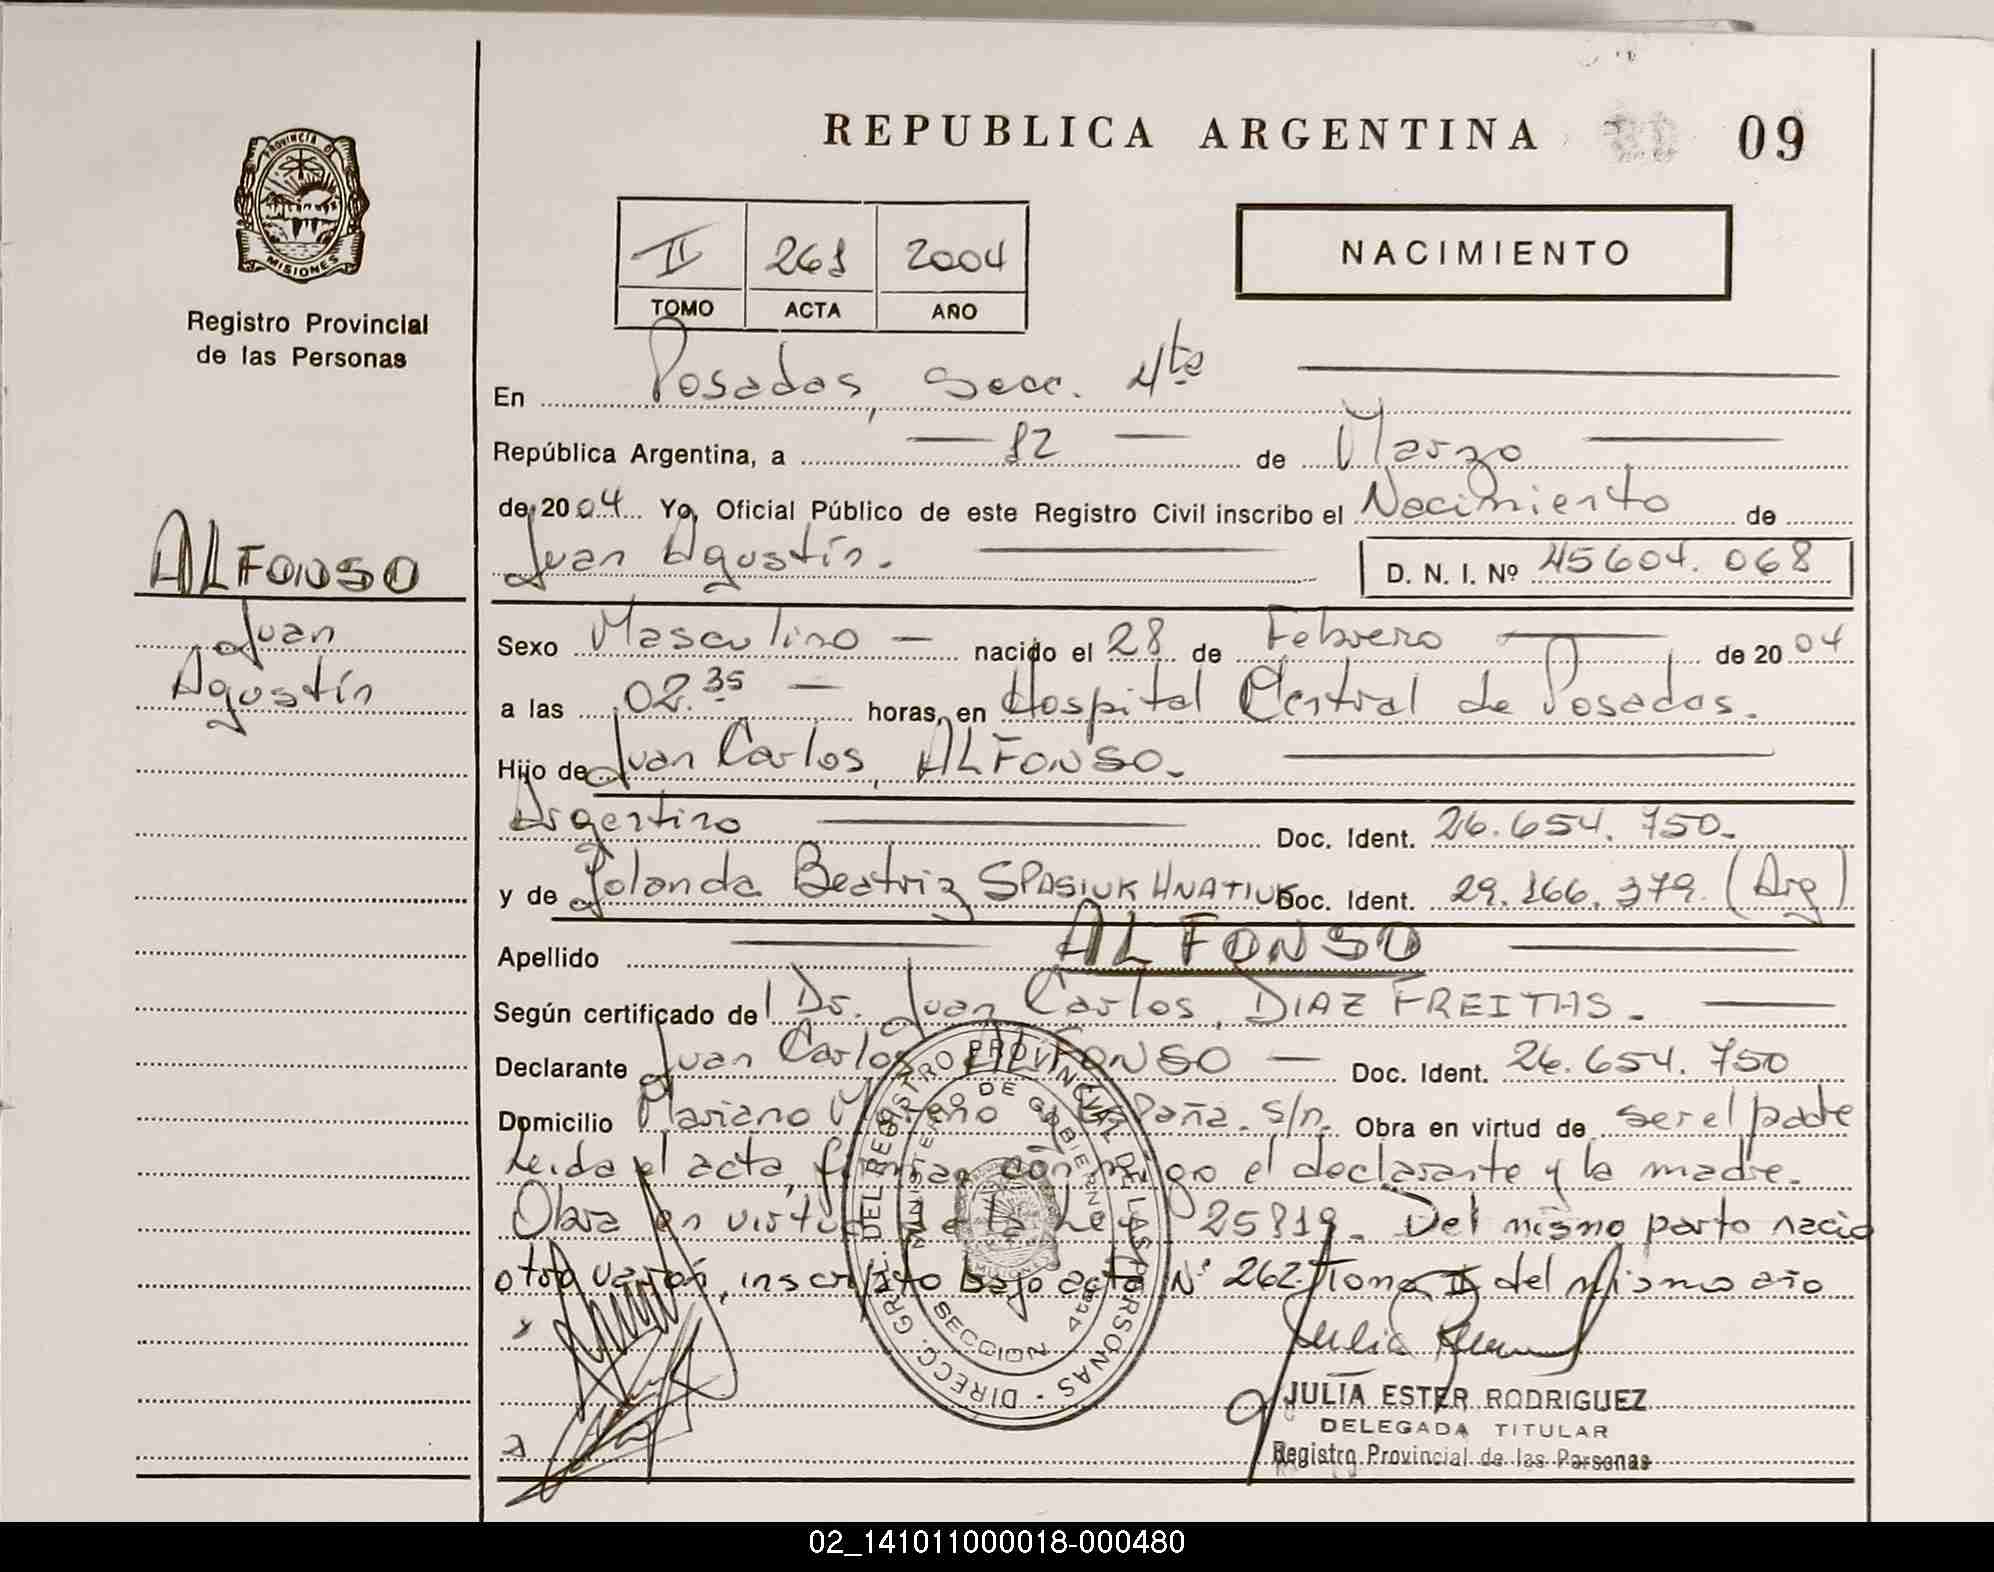 REPUBLICA ARGENTINA
09
PROVINCIA DE
MISIONES
Registro Provincial
de las Personas
II 261 2004
TOMO ACTA AÑO
NACIMIENTO
En Posadas, Secc. 4ta
República Argentina, a 12 de Marzo
de 2004 Yo, Oficial Público de este Registro Civil inscribo el Nacimiento de
Juan Agustín.
D. N. I. Nº 45604.068
ALFONSO
Juan
Agustín
Sexo Masculino nacido el 28 de Febrero de 2004
a las 02.35 horas, en Hospital Central de Posadas.
Hijo de Juan Carlos, ALFONSO.
Argentino Doc. Ident. 26.654.750.
y de Yolanda Beatriz SPASIUK HNATIUK Doc. Ident. 29.166.379. (Arg)
Apellido ALFONSO
Según certificado del Dr. Juan Carlos, DIAZ FREITAS.
Declarante Juan Carlos ALFONSO Doc. Ident. 26.654.750
Domicilio Mariano Moreno España. s/n. Obra en virtud de ser el padre
Leida el acta, firman conmigo el declarante y la madre.
Obra en virtud de la Ley 25819. Del mismo parto nacio
otro varon, inscripto bajo acta Nº 262. Tomo II del mismo año
DIRECC. GRAL. DEL REGISTRO PROVINCIAL DE LAS PERSONAS
MINISTERIO DE GOBIERNO
MISIONES
SECCION 4ta
JULIA ESTER RODRIGUEZ
DELEGADA TITULAR
Registro Provincial de las Personas
02_141011000018-000480